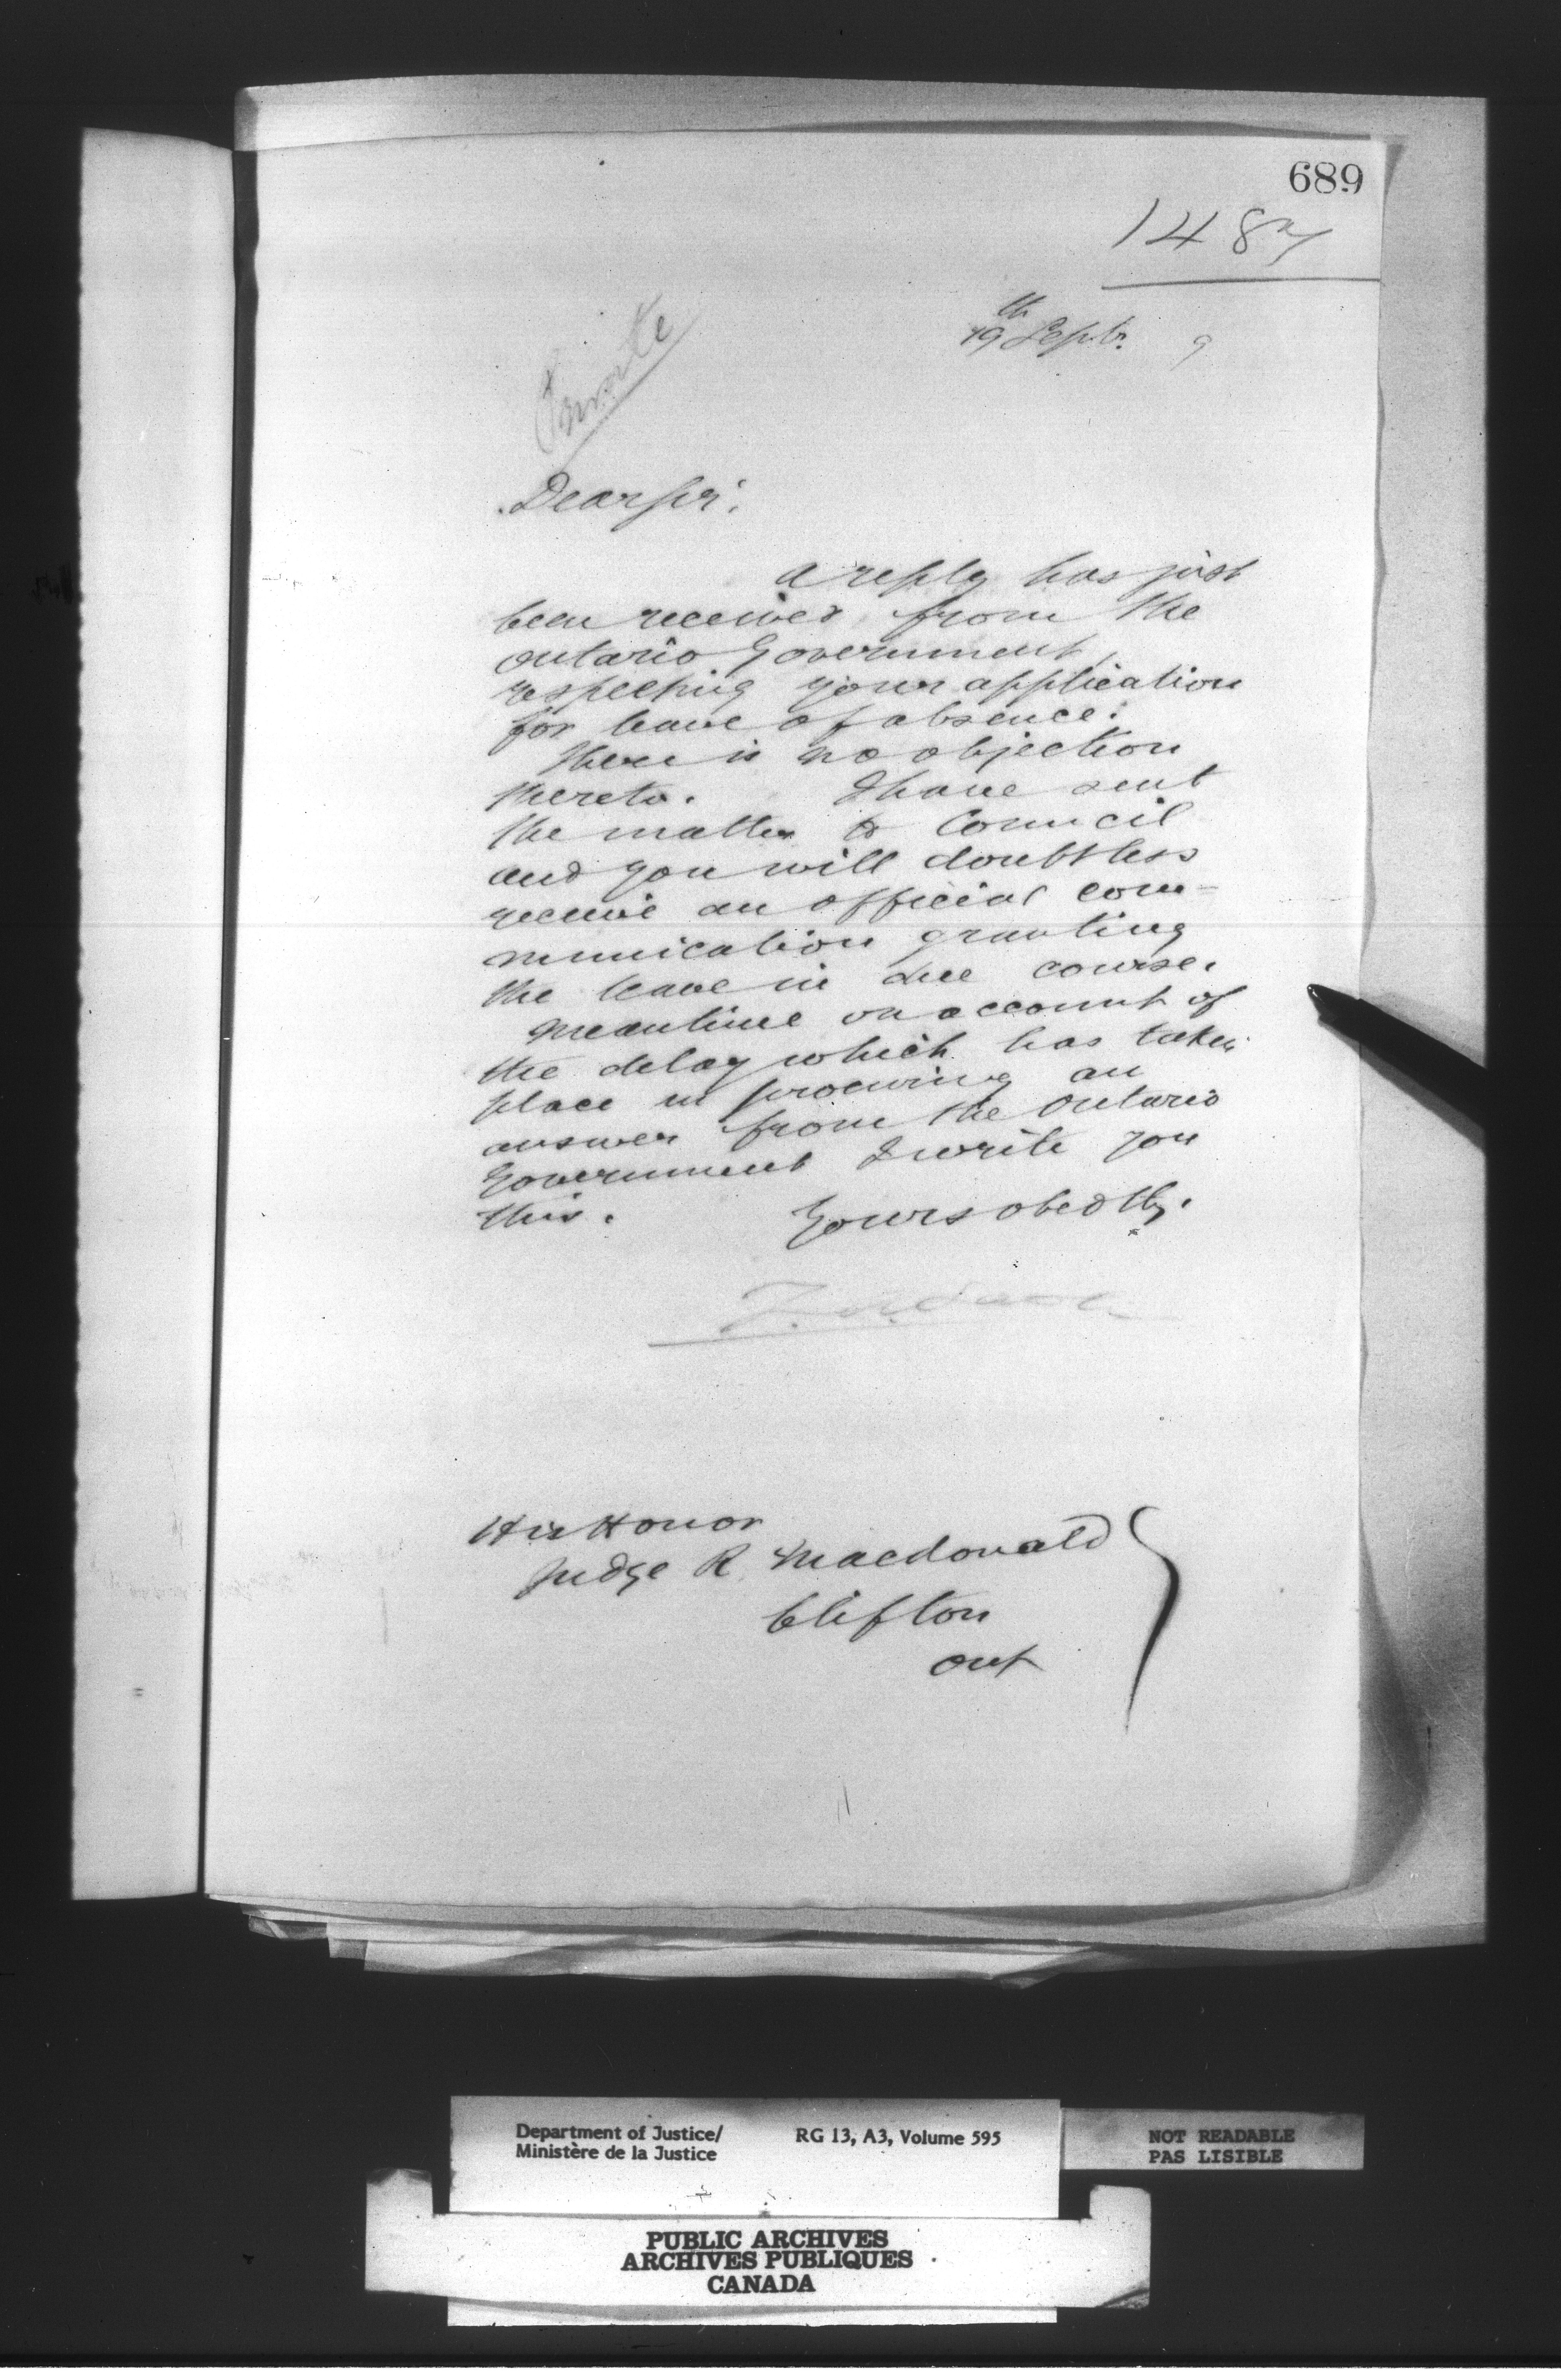 689
1487
19th Septr. 9
Private
Dear Sir,
A reply has just
been received from the
Ontario Government,
respecting your application
for leave of absence.
There is no objection
thereto. I have sent
the matter to Council
and you will doubtless
receive an official com-
munication granting
the leave in due course.
Meantime on account of
the delay which has taken
place in procuring an
answer from the Ontario
Government I write you
this. Yours obedtly.
His Honor
Judge R. Macdonald
Clifton
Ont
Department of Justice/ RG 13, A3, Volume 595
Ministère de la Justice
NOT READABLE
PAS LISIBLE
PUBLIC ARCHIVES
ARCHIVES PUBLIQUES
CANADA